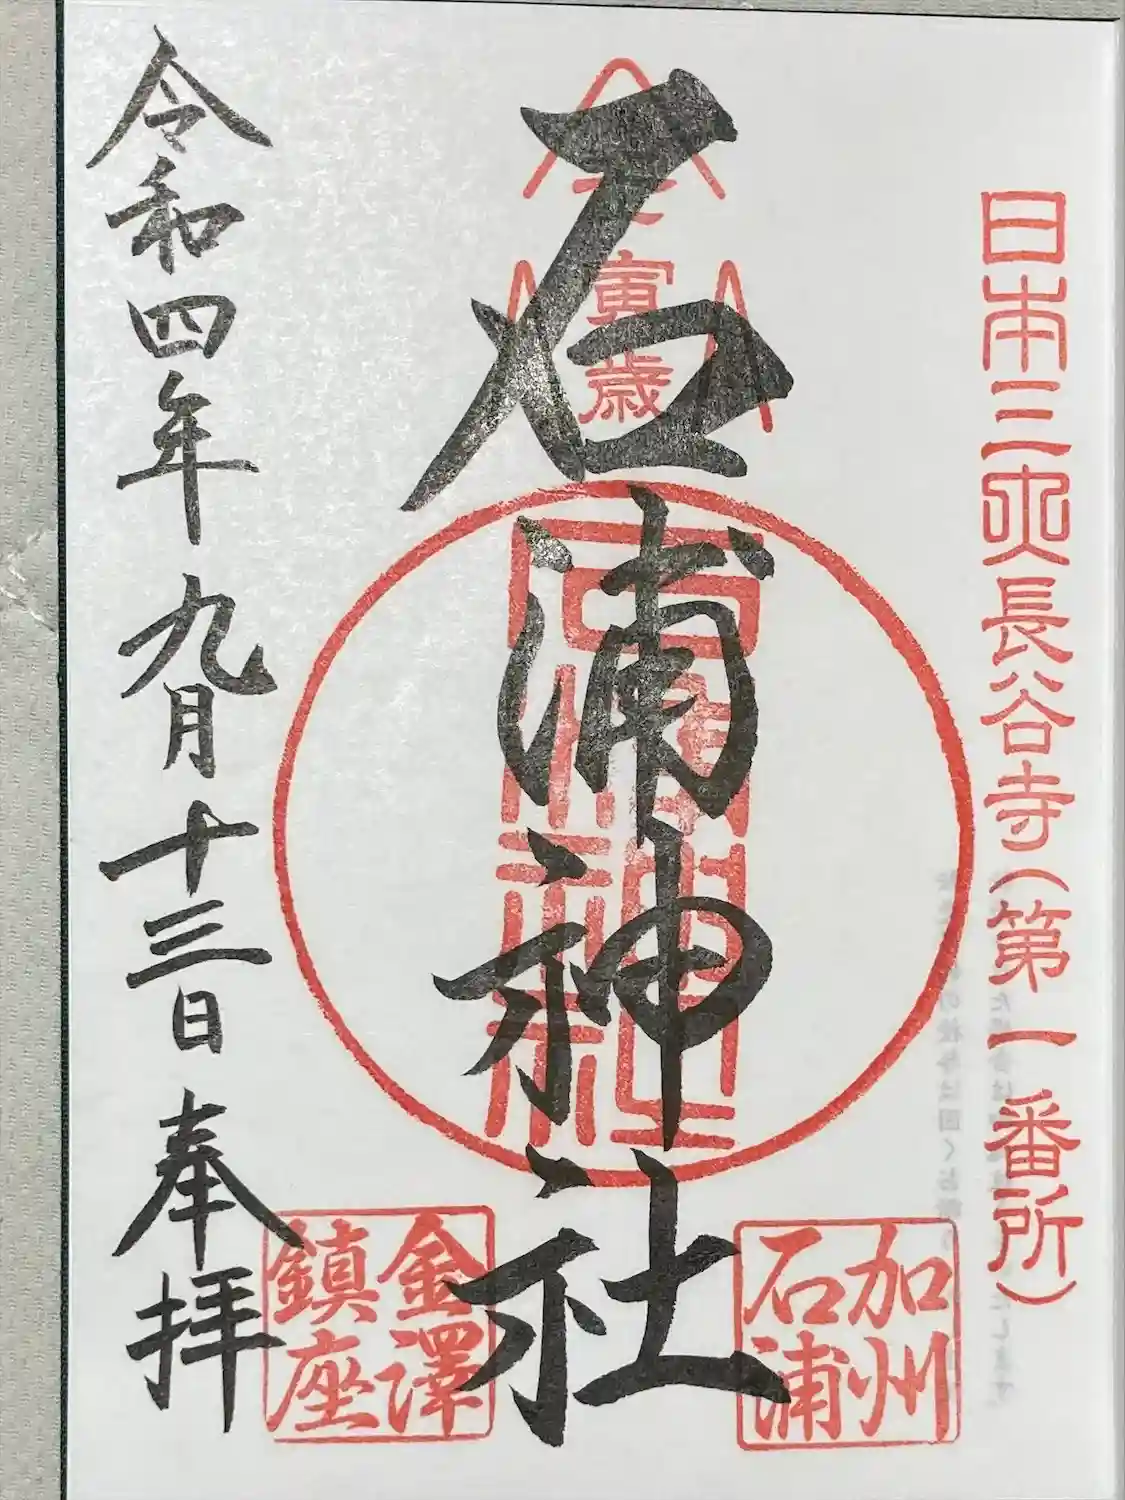 日本三所長谷寺(第一番所)
加州
石浦
壬
寅
歳
石浦神社
石浦神社
金澤
鎮座
令和四年九月十三日奉拝